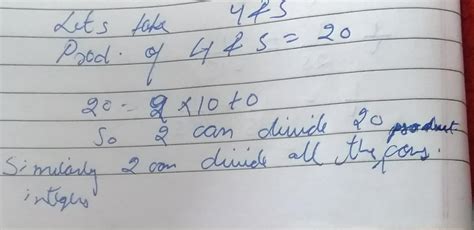 Lets take 4 & 5
Prod. of 4 & 5 = 20
20 = 2 × 10 + 0
So 2 can divide 20 product
Similarly 2 can divide all the cons.
integers